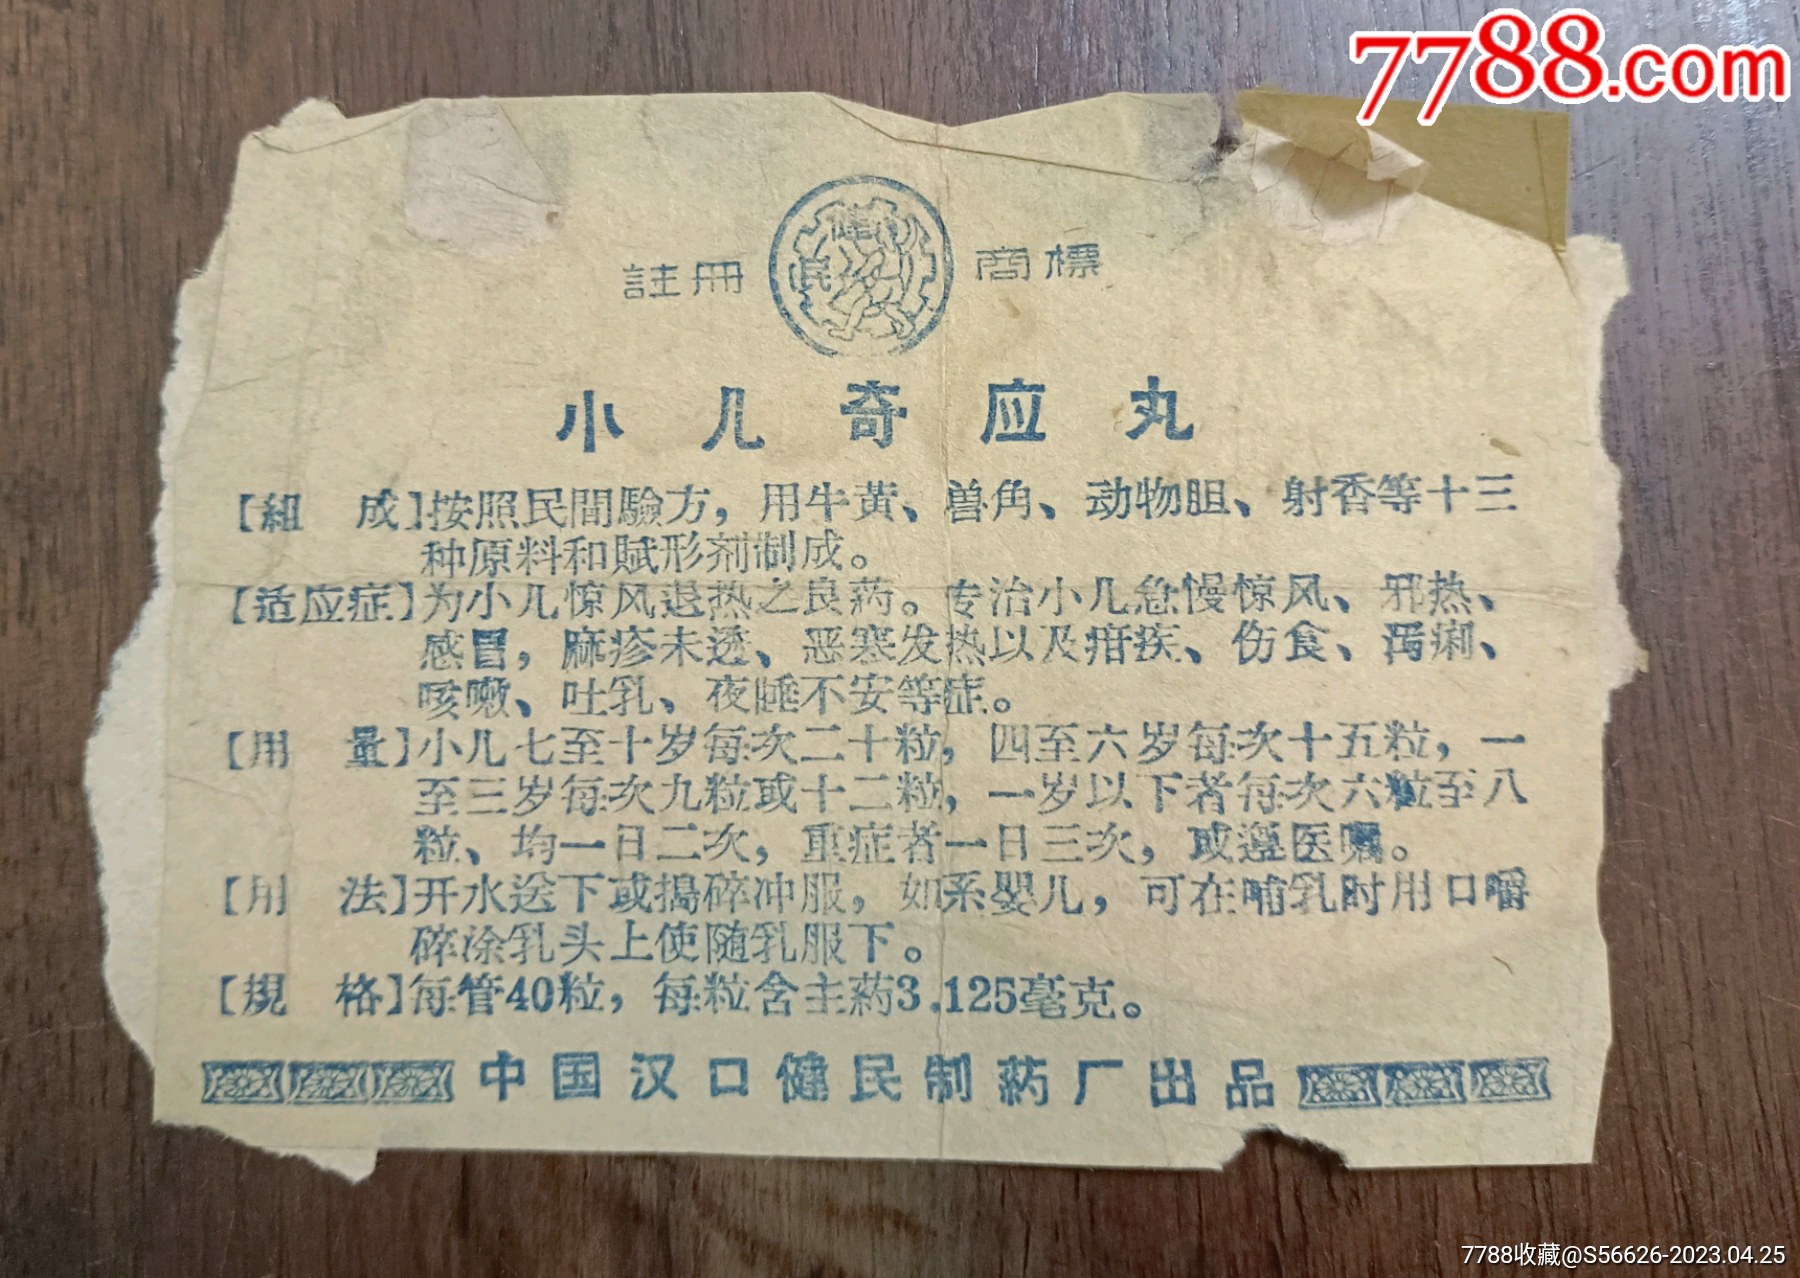 7788.com
註冊 健民 商標
小儿奇应丸
【組 成】按照民間驗方，用牛黄、兽角、动物胆、射香等十三
种原料和賦形剂制成。
【适应症】为小儿惊风退热之良药。专治小儿急慢惊风、邪热、
感冒，麻疹未透、恶寒发热以及疳疾、伤食、泻痢、
咳嗽、吐乳、夜睡不安等症。
【用 量】小儿七至十岁每次二十粒，四至六岁每次十五粒，一
至三岁每次九粒或十二粒，一岁以下者每次六粒至八
粒、均一日二次，重症者一日三次，或遵医嘱。
【用 法】开水送下或搗碎冲服，如系婴儿，可在哺乳时用口嚼
碎涂乳头上使随乳服下。
【規 格】每管40粒，每粒含主药3.125毫克。
中国汉口健民制药厂出品
7788收藏@S56626-2023.04.25